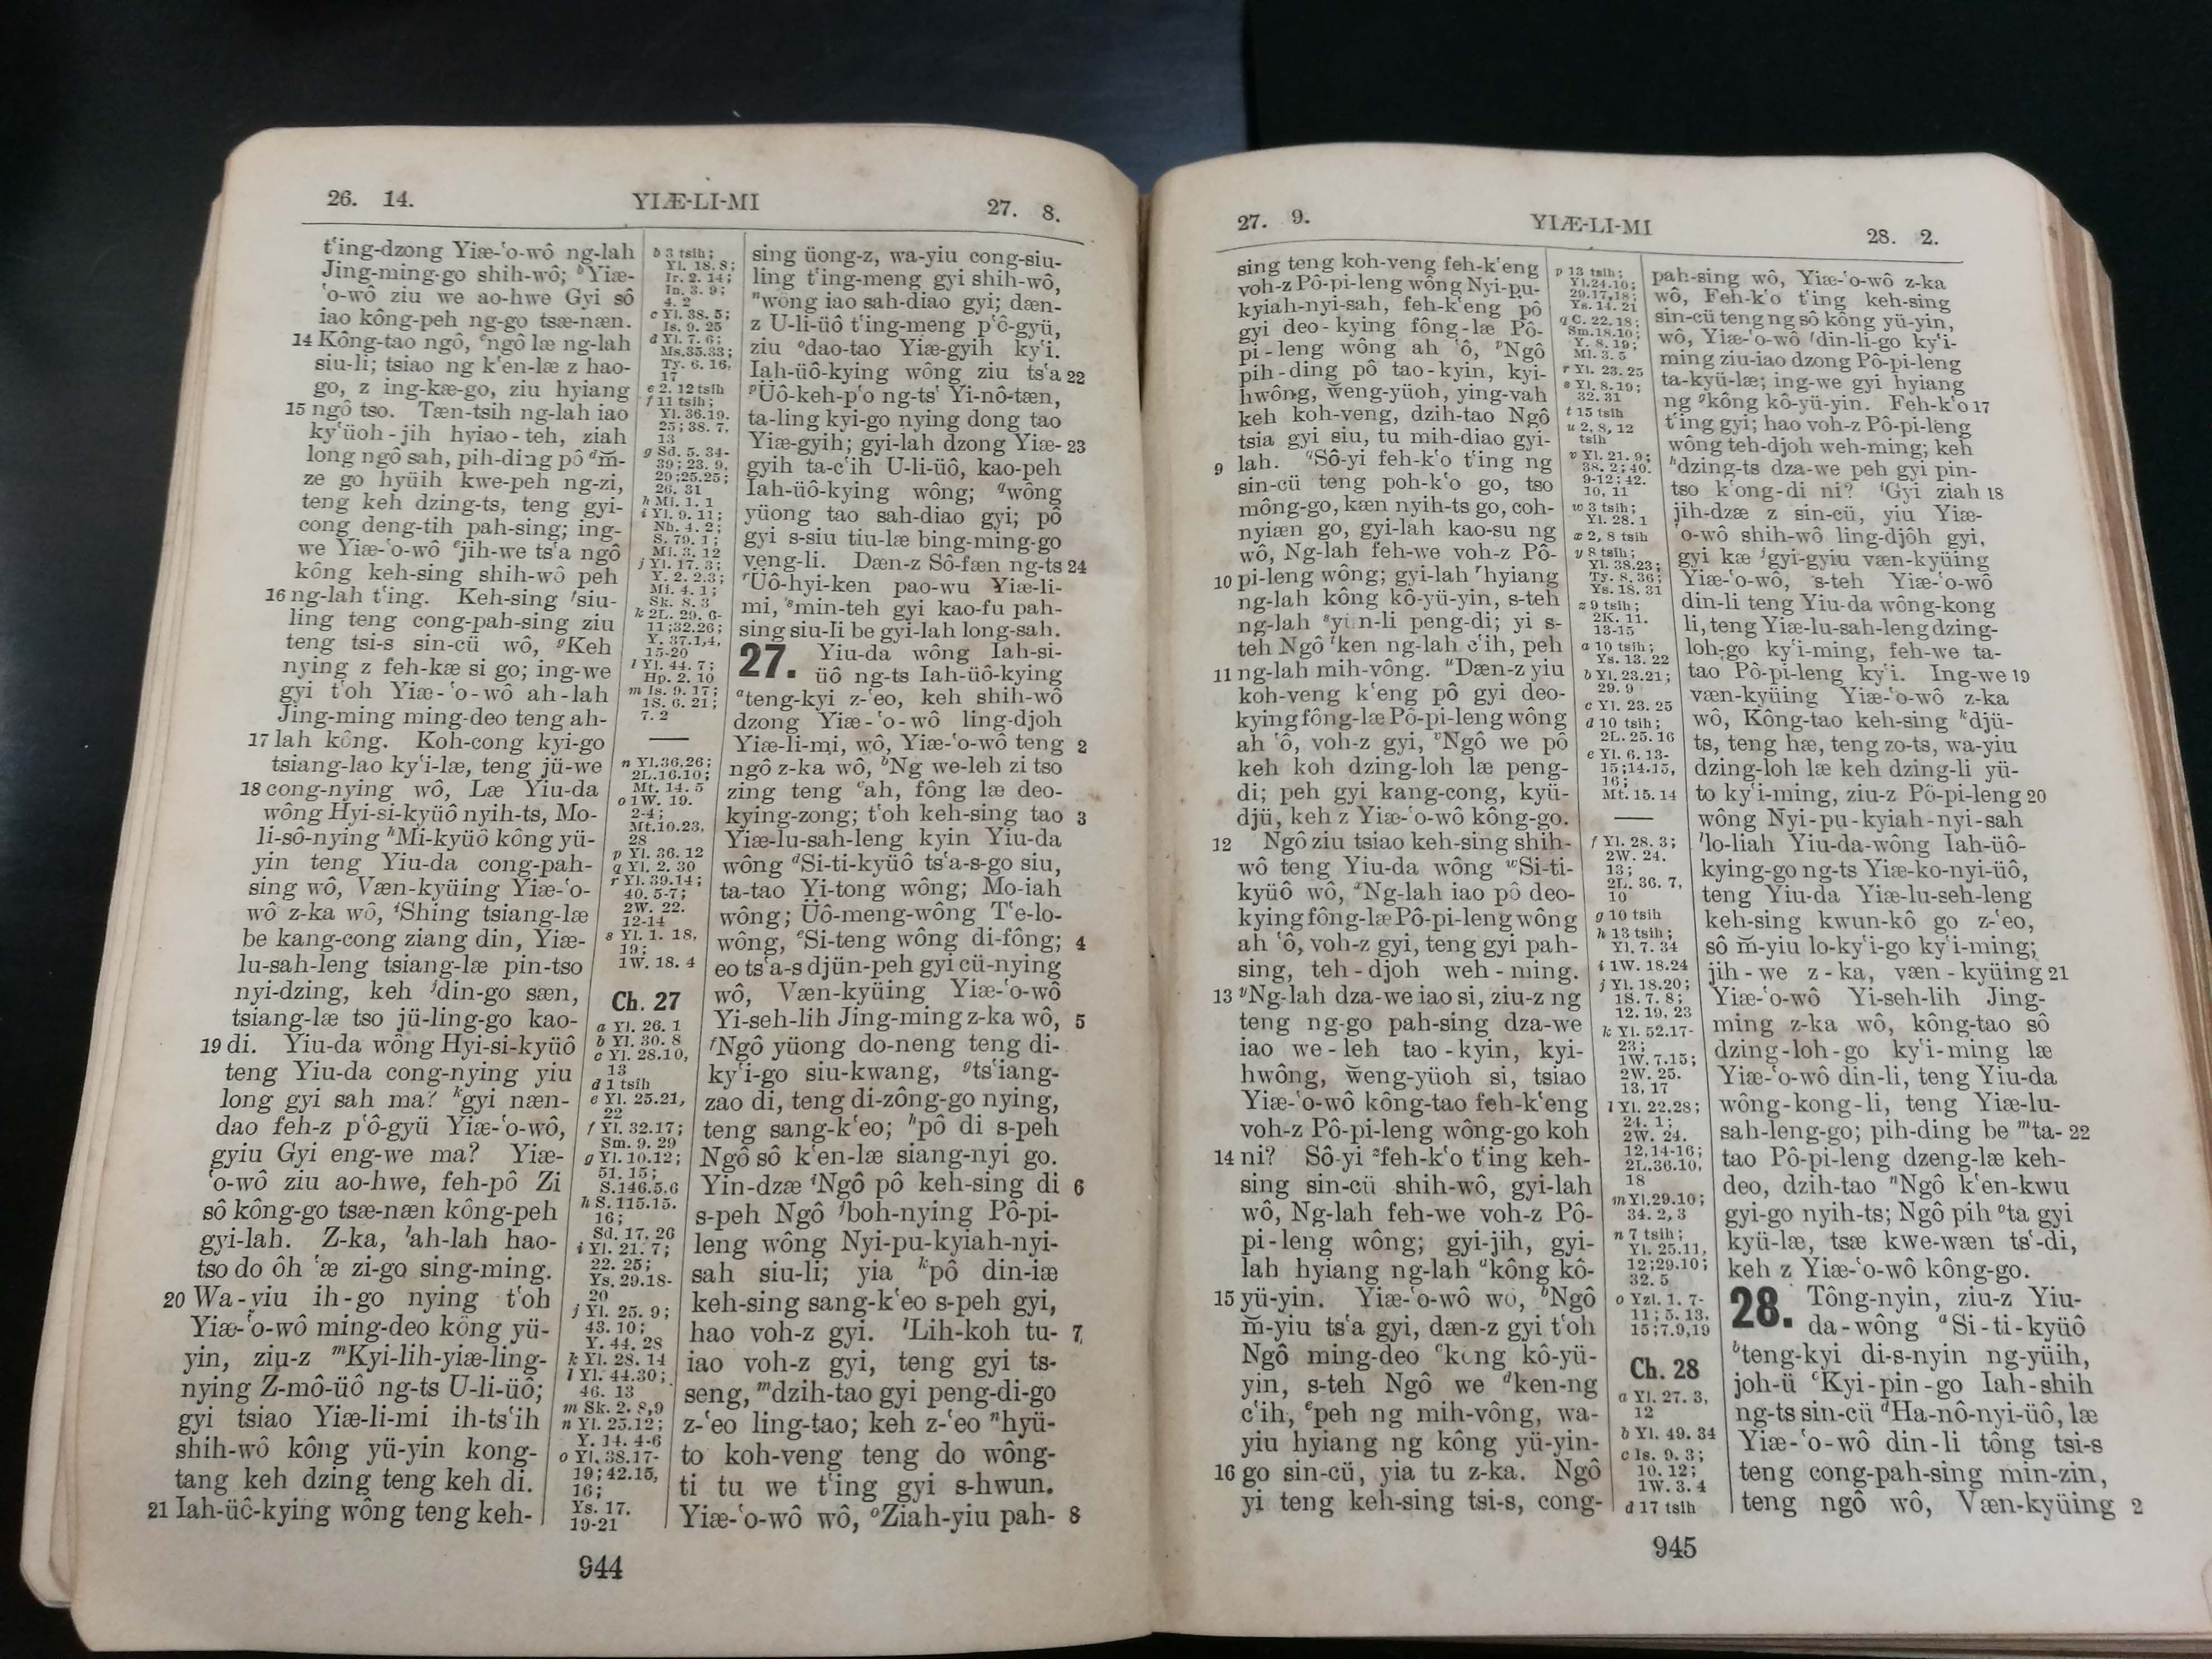 26. 14.
YIÆ-LI-MI
27. 8.
tʻing-dzong Yiæ-ʻo-wô ng-lah
Jing-ming-go shih-wô; ᵇYiæ-
ʻo-wô ziu we ao-hwe Gyi sô
iao kông-peh ng-go tsæ-næn.
14 Kông-tao ngô, ᶜngô læ ng-lah
siu-li; tsiao ng kʻen-læ z hao-
go, z ing-kæ-go, ziu hyiang
15 ngô tso. Tæn-tsih ng-lah iao
kyʻüoh-jih hyiao-teh, ziah
long ngô sah, pih-ding pô ᵈm̆-
ze go hyüih kwe-peh ng-zi,
teng keh dzing-ts, teng gyi-
cong deng-tih pah-sing; ing-
we Yiæ-ʻo-wô ᵉjih-we tsʻa ngô
kông keh-sing shih-wô peh
16 ng-lah tʻing. Keh-sing ᶠsiu-
ling teng cong-pah-sing ziu
teng tsi-s sin-cü wô, ᵍKeh
nying z feh-kæ si go; ing-we
gyi tʻoh Yiæ-ʻo-wô ah-lah
Jing-ming ming-deo teng ah-
17 lah kông. Koh-cong kyi-go
tsiang-lao kyʻi-læ, teng jü-we
18 cong-nying wô, Læ Yiu-da
wông Hyi-si-kyüô nyih-ts, Mo-
li-sô-nying ʰMi-kyüô kông yü-
yin teng Yiu-da cong-pah-
sing wô, Væn-kyüing Yiæ-ʻo-
wô z-ka wô, ⁱShing tsiang-læ
be kang-cong ziang din, Yiæ-
lu-sah-leng tsiang-læ pin-tso
nyi-dzing, keh ʲdin-go sæn,
tsiang-læ tso jü-ling-go kao-
19 di. Yiu-da wông Hyi-si-kyüô
teng Yiu-da cong-nying yiu
long gyi sah ma? ᵏgyi næn-
dao feh-z pʻô-gyü Yiæ-ʻo-wô,
gyiu Gyi eng-we ma? Yiæ-
ʻo-wô ziu ao-hwe, feh-pô Zi
sô kông-go tsæ-næn kông-peh
gyi-lah. Z-ka, ˡah-lah hao-
tso do ôh ʻæ zi-go sing-ming.
20 Wa-yiu ih-go nying tʻoh
Yiæ-ʻo-wô ming-deo kông yü-
yin, ziu-z ᵐKyi-lih-yiæ-ling-
nying Z-mô-üô ng-ts U-li-üô;
gyi tsiao Yiæ-li-mi ih-tsʻih
shih-wô kông yü-yin kong-
tang keh dzing teng keh di.
21 Iah-üô-kying wông teng keh-
b 3 tsih;
Yl. 18. 8;
Ir. 2. 14;
In. 3. 9;
4. 2
c Yl. 38. 5;
Is. 9. 25
d Yl. 7. 6;
Ms. 35. 33;
Ty. 6. 16,
17
e 2. 12 tsih
f 11 tsih;
Yl. 36.19.
25; 38. 7.
13
g Sd. 5. 34-
39; 23. 9.
29; 25.25;
26. 31
h Mi. 1. 1
i Yl. 9. 11;
Nh. 4. 2;
S. 79. 1;
Mi. 3. 12
j Yl. 17. 3;
Y. 2. 2.3;
Mi. 4. 1;
Sk. 8. 3
k 2L. 29. 6-
11; 32.26;
Y. 37.1,4,
15-20
l Yl. 44. 7;
Hp. 2. 10
m Is. 9. 17;
1S. 6. 21;
7. 2
n Yl.36.26;
2L.16.10;
Mt. 14. 5
o 1W. 19.
2-4;
Mt.10.23,
28
p Yl. 36. 12
q Yl. 2. 30
r Yl. 39.14;
40. 5-7;
2W. 22.
12-14
s Yl. 1. 18,
19;
1W. 18. 4
Ch. 27
a Yl. 26. 1
b Yl. 30. 8
c Yl. 28.10,
13
d 1 tsih
e Yl. 25.21,
22
f Yl. 32.17;
Sm. 9. 29
g Yl. 10.12;
51. 15;
S.146.5,6
h S. 115.15.
16;
Sd. 17. 26
i Yl. 21. 7;
22. 25;
Ys. 29.18-
20
j Yl. 25. 9;
43. 10;
Y. 44. 28
k Yl. 28. 14
l Yl. 44.30;
46. 13
m Sk. 2. 8,9
n Yl. 25.12;
Y. 14. 4-6
o Yl. 38.17-
19; 42.15,
16;
Ys. 17.
19-21
sing üong-z, wa-yiu cong-siu-
ling tʻing-meng gyi shih-wô,
ⁿwông iao sah-diao gyi; dæn-
z U-li-üô tʻing-meng pʻô-gyü,
ziu ᵒdao-tao Yiæ-gyih kyʻi.
Iah-üô-kying wông ziu tsʻa 22
ᵖÜô-keh-pʻo ng-tsʻ Yi-nô-tæn,
ta-ling kyi-go nying dong tao
Yiæ-gyih; gyi-lah dzong Yiæ- 23
gyih ta-cʻih U-li-üô, kao-peh
Iah-üô-kying wông; ᵠwông
yüong tao sah-diao gyi; pô
gyi s-siu tiu-læ bing-ming-go
veng-li. Dæn-z Sô-fæn ng-ts 24
ʳÜô-hyi-ken pao-wu Yiæ-li-
mi, ˢmin-teh gyi kao-fu pah-
sing siu-li be gyi-lah long-sah.
27. Yiu-da wông Iah-si-
üô ng-ts Iah-üô-kying
ᵃteng-kyi z-ʻeo, keh shih-wô
dzong Yiæ-ʻo-wô ling-djoh
Yiæ-li-mi, wô, Yiæ-ʻo-wô teng 2
ngô z-ka wô, ᵇNg we-leh zi tso
zing teng ᶜah, fông læ deo-
kying-zong; tʻoh keh-sing tao 3
Yiæ-lu-sah-leng kyin Yiu-da
wông ᵈSi-ti-kyüô tsʻa-s-go siu,
ta-tao Yi-tong wông; Mo-iah
wông; Üô-meng-wông Tʻe-lo-
wông, ᵉSi-teng wông di-fông; 4
eo tsʻa-s djün-peh gyi cü-nying
wô, Væn-kyüing Yiæ-ʻo-wô
Yi-seh-lih Jing-ming z-ka wô, 5
ᶠNgô yüong do-neng teng di-
kyʻi-go siu-kwang, ᵍtsʻiang-
zao di, teng di-zông-go nying,
teng sang-kʻeo; ʰpô di s-peh
Ngô sô kʻen-læ siang-nyi go.
Yin-dzæ ⁱNgô pô keh-sing di 6
s-peh Ngô ʲboh-nying Pô-pi-
leng wông Nyi-pu-kyiah-nyi-
sah siu-li; yia ᵏpô din-iæ
keh-sing sang-kʻeo s-peh gyi,
hao voh-z gyi. ˡLih-koh tu- 7
iao voh-z gyi, teng gyi ts-
seng, ᵐdzih-tao gyi peng-di-go
z-ʻeo ling-tao; keh z-ʻeo ⁿhyü-
to koh-veng teng do wông-
ti tu we tʻing gyi s-hwun.
Yiæ-ʻo-wô wô, ᵒZiah-yiu pah- 8
944
27. 9.
YIÆ-LI-MI
28. 2.
sing teng koh-veng feh-kʻeng
voh-z Pô-pi-leng wông Nyi-pu-
kyiah-nyi-sah, feh-kʻeng pô
gyi deo-kying fông-læ Pô-
pi-leng wông ah ʻô, ᵖNgô
pih-ding pô tao-kyin, kyi-
hwông, w̆eng-yüoh, ying-vah
keh koh-veng, dzih-tao Ngô
tsia gyi siu, tu mih-diao gyi-
9 lah. ᵠSô-yi feh-kʻo tʻing ng
sin-cü teng poh-kʻo go, tso
mông-go, kæn nyih-ts go, coh-
nyiæn go, gyi-lah kao-su ng
wô, Ng-lah feh-we voh-z Pô-
10 pi-leng wông; gyi-lah ʳhyiang
ng-lah kông kô-yü-yin, s-teh
ng-lah ˢyün-li peng-di; yi s-
teh Ngô ᵗken ng-lah cʻih, peh
11 ng-lah mih-vông. ᵘDæn-z yiu
koh-veng kʻeng pô gyi deo-
kying fông-læ Pô-pi-leng wông
ah ʻô, voh-z gyi, ᵛNgô we pô
keh koh dzing-loh læ peng-
di; peh gyi kang-cong, kyü-
djü, keh z Yiæ-ʻo-wô kông-go.
12 Ngô ziu tsiao keh-sing shih-
wô teng Yiu-da wông ʷSi-ti-
kyüô wô, ˣNg-lah iao pô deo-
kying fông-læ Pô-pi-leng wông
ah ʻô, voh-z gyi, teng gyi pah-
sing, teh-djoh weh-ming.
13 ʸNg-lah dza-we iao si, ziu-z ng
teng ng-go pah-sing dza-we
iao we-leh tao-kyin, kyi-
hwông, w̆eng-yüoh si, tsiao
Yiæ-ʻo-wô kông-tao feh-kʻeng
voh-z Pô-pi-leng wông-go koh
14 ni? Sô-yi ᶻfeh-kʻo tʻing keh-
sing sin-cü shih-wô, gyi-lah
wô, Ng-lah feh-we voh-z Pô-
pi-leng wông; gyi-jih, gyi-
lah hyiang ng-lah ᵃkông kô-
15 yü-yin. Yiæ-ʻo-wô wô, ᵇNgô
m̆-yiu tsʻa gyi, dæn-z gyi tʻoh
Ngô ming-deo ᶜkông kô-yü-
yin, s-teh Ngô we ᵈken-ng
cʻih, ᵉpeh ng mih-vông, wa-
yiu hyiang ng kông yü-yin-
16 go sin-cü, yia tu z-ka. Ngô
yi teng keh-sing tsi-s, cong-
p 13 tsih;
Yl.24.10;
29.17,18;
Ys. 14. 21
q C. 22. 18;
Sm.18.10;
Y. 8. 19;
Ml. 3. 5
r Yl. 23. 25
s Yl. 8. 19;
32. 31
t 15 tsih
u 2, 8, 12
tsih
v Yl. 21. 9;
38. 2; 40.
9-12; 42.
10, 11
w 3 tsih;
Yl. 28. 1
x 2, 8 tsih
y 8 tsih;
Yl. 38.23;
Ty. 8. 36;
Ys. 18. 31
z 9 tsih;
2K. 11.
13-15
a 10 tsih;
Ys. 13. 22
b Yl. 23.21;
29. 9
c Yl. 23. 25
d 10 tsih;
2L. 25. 16
e Yl. 6. 13-
15; 14.15,
16;
Mt. 15. 14
f Yl. 28. 3;
2W. 24.
13;
2L. 36. 7,
10
g 10 tsih
h 13 tsih;
Yl. 7. 34
i 1W. 18.24
j Yl. 18.20;
1S. 7. 8;
12. 19, 23
k Yl. 52.17-
23;
1W. 7.15;
2W. 25.
13, 17
l Yl. 22.28;
24. 1;
2W. 24.
12,14-16;
2L.36.10,
18
m Yl.29.10;
34. 2, 3
n 7 tsih;
Yl. 25.11,
12; 29.10;
32. 5
o Yzl. 1. 7-
11; 5. 13.
15; 7.9,19
Ch. 28
a Yl. 27. 3,
12
b Yl. 49. 34
c Is. 9. 3;
10. 12;
1W. 3. 4
d 17 tsih
pah-sing wô, Yiæ-ʻo-wô z-ka
wô, Feh-kʻo tʻing keh-sing
sin-cü teng ng sô kông yü-yin,
wô, Yiæ-ʻo-wô ᶠdin-li-go kyʻi-
ming ziu-iao dzong Pô-pi-leng
ta-kyü-læ; ing-we gyi hyiang
ng ᵍkông kô-yü-yin. Feh-kʻo 17
tʻing gyi; hao voh-z Pô-pi-leng
wông teh-djoh weh-ming; keh
ʰdzing-ts dza-we peh gyi pin-
tso kʻong-di ni? ⁱGyi ziah 18
jih-dzæ z sin-cü, yiu Yiæ-
ʻo-wô shih-wô ling-djôh gyi,
gyi kæ ʲgyi-gyiu væn-kyüing
Yiæ-ʻo-wô, s-teh Yiæ-ʻo-wô
din-li teng Yiu-da wông-kong
li, teng Yiæ-lu-sah-leng dzing-
loh-go kyʻi-ming, feh-we ta-
tao Pô-pi-leng kyʻi. Ing-we 19
væn-kyüing Yiæ-ʻo-wô z-ka
wô, Kông-tao keh-sing ᵏdjü-
ts, teng hæ, teng zo-ts, wa-yiu
dzing-loh læ keh dzing-li yü-
to kyʻi-ming, ziu-z Pô-pi-leng 20
wông Nyi-pu-kyiah-nyi-sah
ˡlo-liah Yiu-da-wông Iah-üô-
kying-go ng-ts Yiæ-ko-nyi-üô,
teng Yiu-da Yiæ-lu-seh-leng
keh-sing kwun-kô go z-ʻeo,
sô m̆-yiu lo-kyʻi-go kyʻi-ming;
jih-we z-ka, væn-kyüing 21
Yiæ-ʻo-wô Yi-seh-lih Jing-
ming z-ka wô, kông-tao sô
dzing-loh-go kyʻi-ming læ
Yiæ-ʻo-wô din-li, teng Yiu-da
wông-kong-li, teng Yiæ-lu-
sah-leng-go; pih-ding be ᵐta- 22
tao Pô-pi-leng dzeng-læ keh-
deo, dzih-tao ⁿNgô kʻen-kwu
gyi-go nyih-ts; Ngô pih ᵒta gyi
kyü-læ, tsæ kwe-wæn tsʻ-di,
keh z Yiæ-ʻo-wô kông-go.
28. Tông-nyin, ziu-z Yiu-
da-wông ᵃSi-ti-kyüô
ᵇteng-kyi di-s-nyin ng-yüih,
joh-ü ᶜKyi-pin-go Iah-shih
ng-ts sin-cü ᵈHa-nô-nyi-üô, læ
Yiæ-ʻo-wô din-li tông tsi-s
teng cong-pah-sing min-zin,
teng ngô wô, Væn-kyüing 2
945